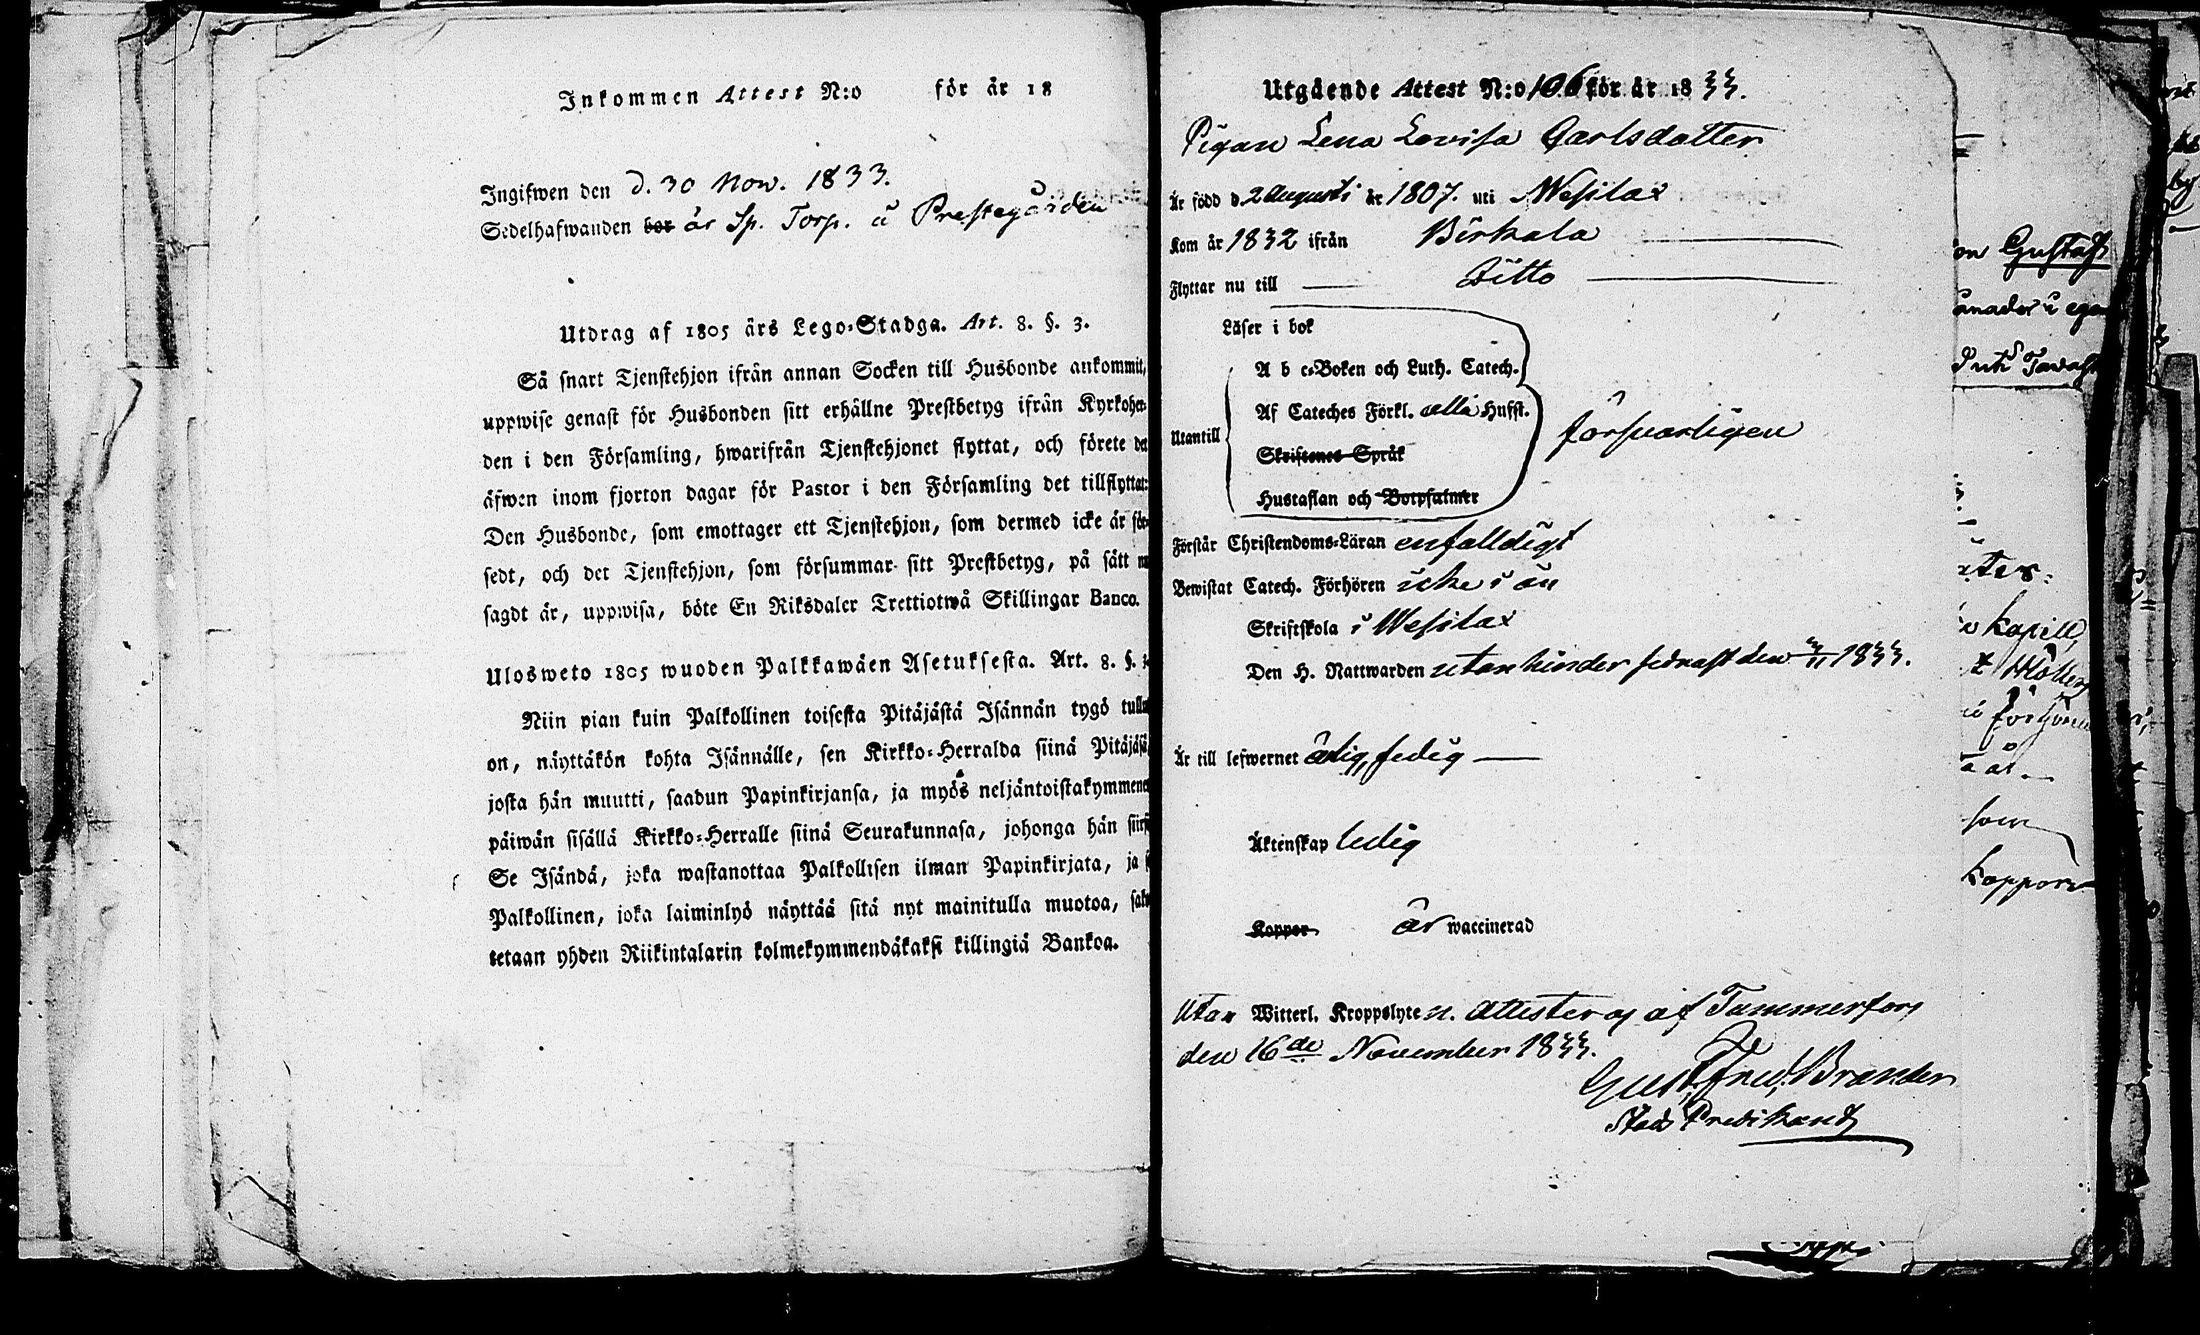 Inkommen Attest N:o för år 18
Ingifwen den d. 30 Nov. 1833.
Sedelhafwanden bor är Sp. Torp. å Prestegården
Utdrag af 1805 års Lego-Stadga. Art. 8. §. 3.
Så snart Tjenstehjon ifrån annan Socken till Husbonde ankommit,
uppwise genast för Husbonden sitt erhållne Prestbetyg ifrån Kyrkoher-
den i den Församling, hwarifrån Tjenstehjonet flyttat, och förete det
äfwen inom fjorton dagar för Pastor i den Församling det tillflyttat:
Den Husbonde, som emottager ett Tjenstehjon, som dermed icke är för-
sedt, och det Tjenstehjon, som försummar sitt Prestbetyg, på sätt nu
sagdt är, uppwisa, böte En Riksdaler Trettiotwå Skillingar Banco.
Ulosweto 1805 wuoden Palkkawäen Asetuksesta. Art. 8. §. 3.
Niin pian kuin Palkollinen toisesta Pitäjästä Isännän tygö tullut
on, näyttäkön kohta Isännälle, sen Kirkko-Herralda siinä Pitäjäsä,
josta hän muutti, saadun Papinkirjansa, ja myös neljäntoistakymmenen
päiwän sisällä Kirkko-Herralle siinä Seurakunnasa, johonga hän siirsi
Se Isändä, joka wastanottaa Palkollisen ilman Papinkirjata, ja se
Palkollinen, joka laiminlyö näyttää sitä nyt mainitulla muotoa, sako-
tetaan yhden Riikintalarin kolmekymmendäkaksi killingiä Bankoa.
Utgående Attest N:o 106 för år 1833.
Pigan Lena Lovisa Carlsdotter
Är född d. 2 Augusti år 1807. uti Wesilax
Kom år 1832 ifrån Birkala
Flyttar nu till Ditto
Läser i bok
A b c-Boken och Luth. Catech.
Af Cateches Förkl. alla Hufst.
Utantill
Skriftenes Språk
försvarligen
Hustaflan och Botpsalmer
Förstår Christendoms-Läran enfalldigt
Bewistat Catech. Förhören icke i år
Skriftskola i Wesilax
Den H. Nattwarden utan hinder sednast den 3/11 1833.
Är till lefwernet ärlig, sedig
Äktenskap ledig
Koppor är waccinerad
Utan Witterl. Kroppslyten. Attesteras af Tammerfors
den 16de November 1833.
Gust. Fred. Brander
Stads Predikant
Gustaf
kapell
som
koppor